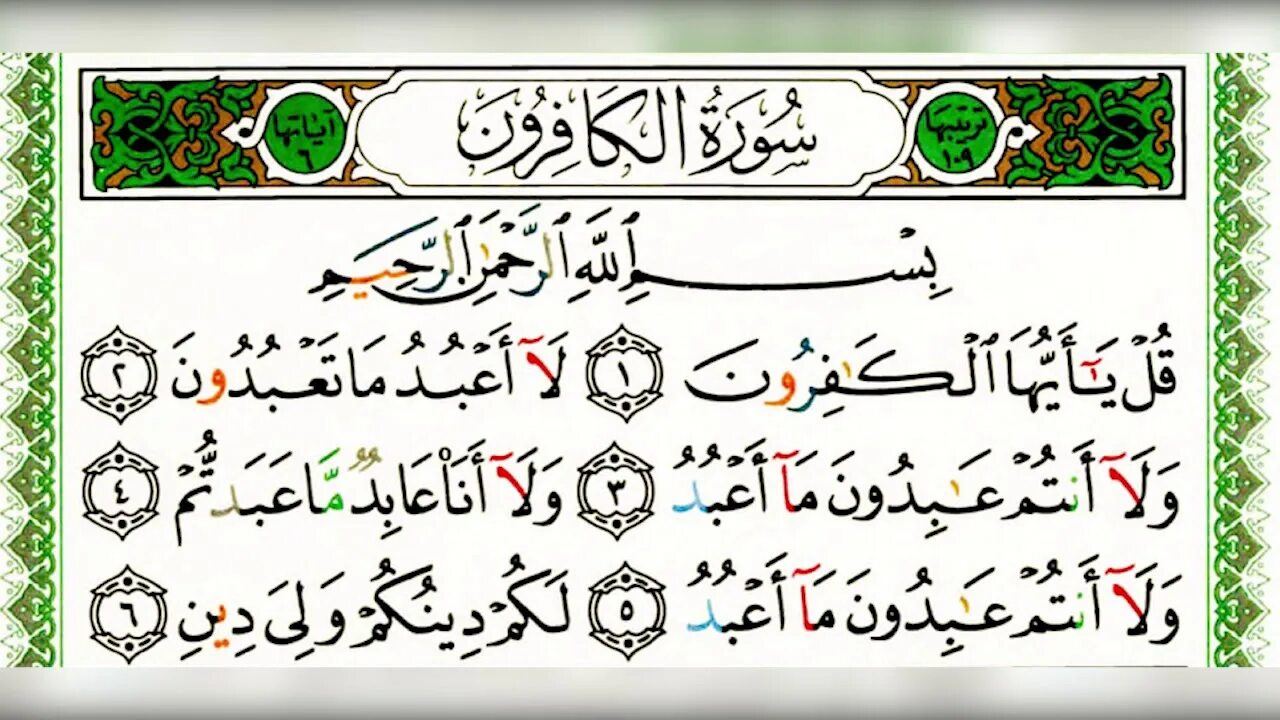 ترتيبها ١٠٩ سُورَةُ الكَافِرُونَ آياتها ٦
بِسْمِ ٱللَّهِ ٱلرَّحْمَٰنِ ٱلرَّحِيمِ
قُلْ يَٰٓأَيُّهَا ٱلْكَٰفِرُونَ ١ لَآ أَعْبُدُ مَا تَعْبُدُونَ ٢
وَلَآ أَنتُمْ عَٰبِدُونَ مَآ أَعْبُدُ ٣ وَلَآ أَنَا۠ عَابِدٌ مَّا عَبَدتُّمْ ٤
وَلَآ أَنتُمْ عَٰبِدُونَ مَآ أَعْبُدُ ٥ لَكُمْ دِينُكُمْ وَلِىَ دِينِ ٦